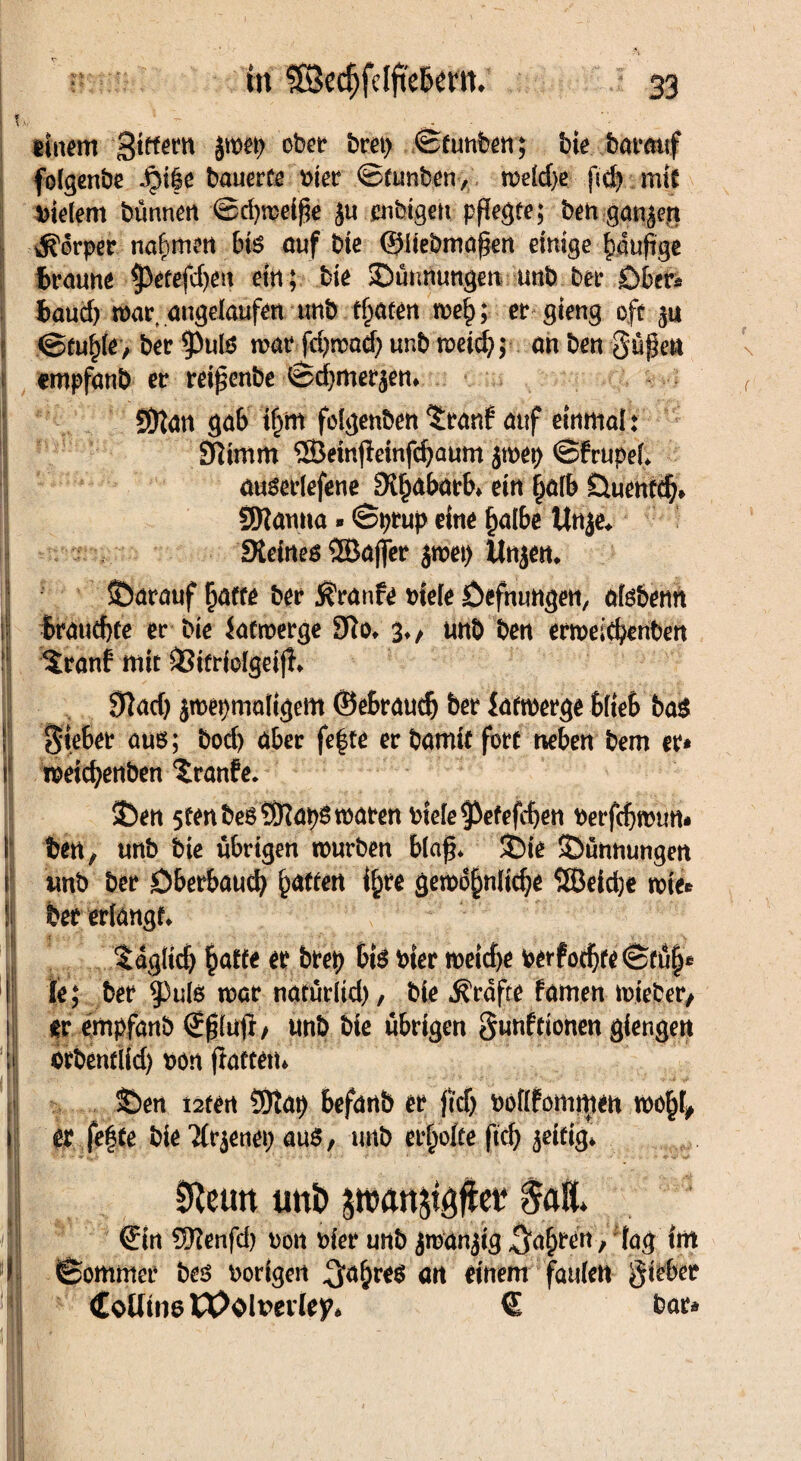 in Wechselfiebern. 33
einem Zittern zwey oder drey Stunden; die darauf
folgende Hitze dauerte vier Stunden, welche sich mit
vielem dünnen Schweiße zu endigen pflegte; den ganzen
Körper nahmen bis auf die Gliedmaßen einige häufige
braune Petefchen ein; die Dünnungen und der Ober-
bauch war angelaufen und thaten weh; er gieng oft zu
Stuhle, der Puls war schwach und weich; an den Füßen
empfand er reißende Schmerzen.
Man gab ihm folgenden Trank auf einmal:
Nimm Weinsteinschaum zwey Skrupel.
auserlesene Rhabarb. ein halb Quentch.
Manna-Syrup eine halbe Unze.
Reines Wasser zwey Unzen.
Darauf hatte der Kranke viele Oefnungen, alsdenn
brauchte er die Latwerge No. 3., und den erweichenden
Trank mit Vitriolgeist.
Nach zweymaligem Gebrauch der Latwerge blieb das
Fieber aus; doch aber setzte er damit fort neben dem er-
weichenden Tranke.
Den 5ten des Mays waren viele Peteschen verschwun-
den, und die übrigen wurden blaß. Die Dünnungen
und der Oberbauch hatten ihre gewöhnliche Weiche wie-
der erlangt.
Täglich hatte er drey bis vier weiche verkochte Stüh-
le; der Puls war natürlich, die Kräfte kamen wieder,
er empfand Eßlust, und die übrigen Funktionen giengen
ordentlich von statten.
Den 12ten May befand er sich vollkommen wohl,
er setzte die Arzeney aus, und erholte sich zeitig.
Neun und zwanzigster Fall.
Ein Mensch von vier und zwanzig Jahren, lag im
Sommer des vorigen Jahres an einem faulen Fieber
Collins Wolverley. C dar-